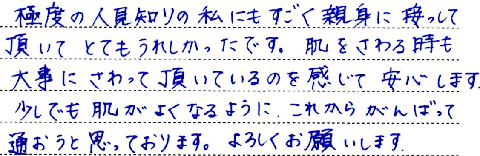 極度の人見知りの私にもすごく親身に接っして
頂いてとてもうれしかったです。肌をさわる時も
大事にさわって頂いているのを感じて安心します
少しでも肌がよくなるように、これからがんばって
通おうと思っております。よろしくお願いします